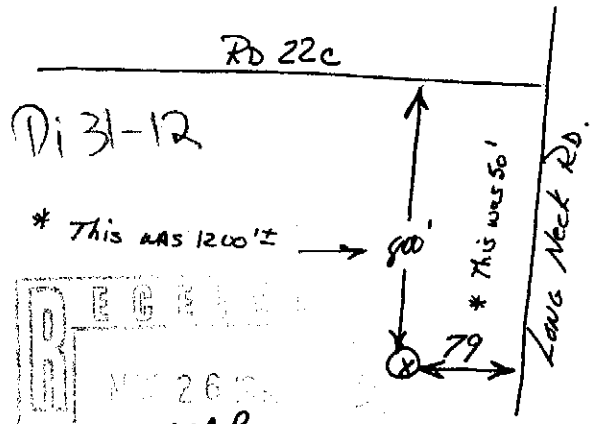 RD 22c
Di 31-12
* This was 1200'±
800'
* This was 50'
LONG Neck RD.
79
X
R E C E
26